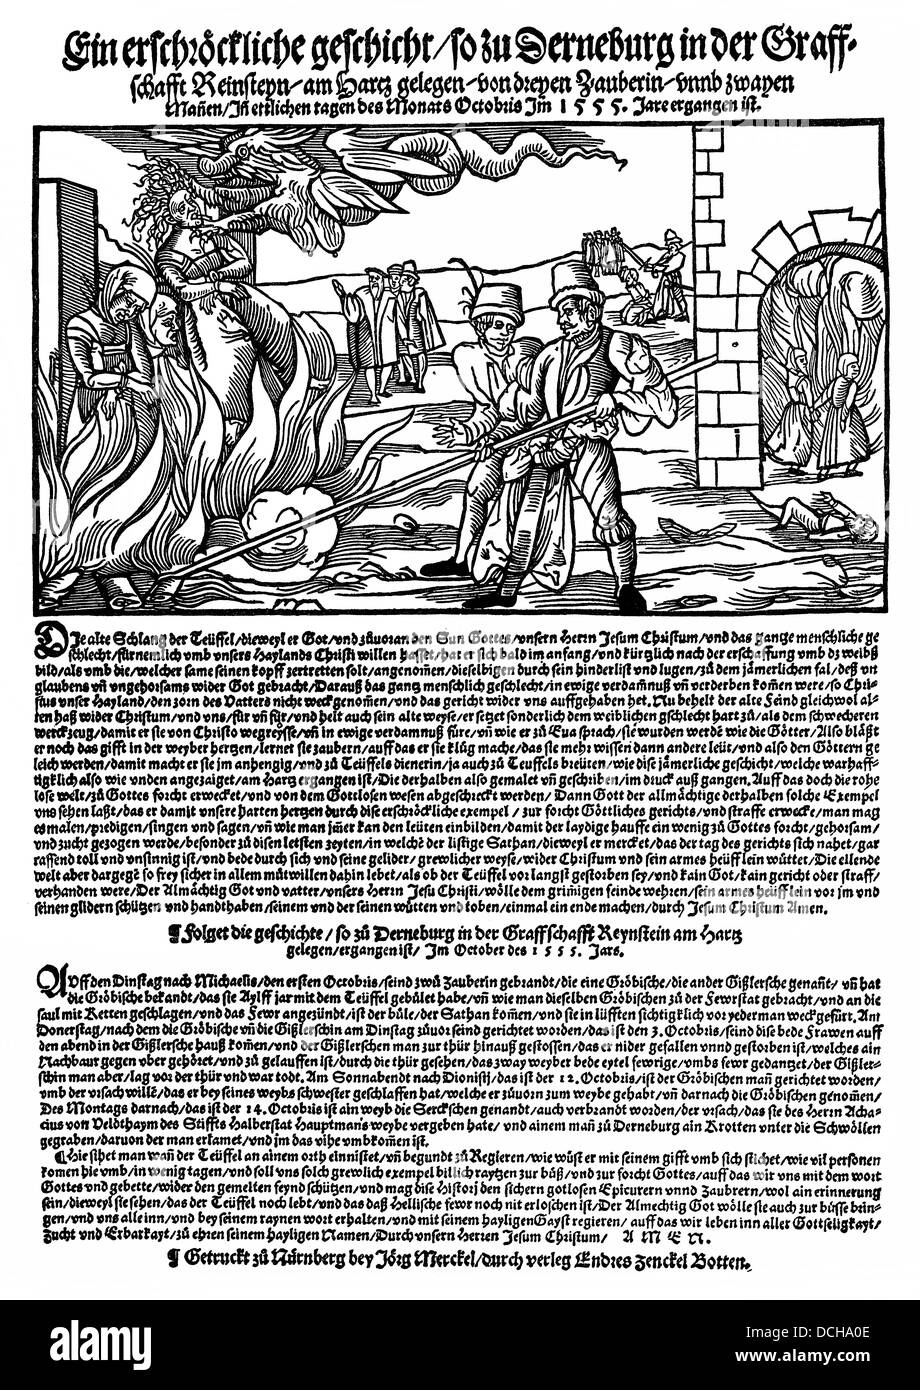 Ein erschröckliche geschicht/so zu Derneburg in der Graff-
schafft Reinsteyn/am Hartz gelegen/von dreyen Zauberin/vnnd zwayen
Mañen/Jñ etlichen tagen des Monats Octobris Jm 1555. Jare ergangen ist.
DJe alte Schlang der Teüffel/dieweyl er Got/vnd zůuoran den Sun Gottes/vnsern Herrn Jesum Christum/vnd das gantze menschliche ge
schlecht/fürnemlich vmb vnsers Haylands Christi willen hasset/hat er sich bald im anfang/vnd kürtzlich nach der erschaffung vmb dz weibß
bild/als vmb die/welcher same seinen kopff zertretten solt/angenom̃en/dieselbigen durch sein hinderlist vnd lugen/zů dem jämerlichen fal/deß vn
glaubens vñ vngehorsams wider Got gebracht/Darauß das gantz menschlich geschlecht/in ewige verdam̃nuß vñ verderben kom̃en were/so Chri-
stus vnser Hayland/den zorn des Vatters nicht weck genom̃en/vnd das gericht wider vns auffgehaben het. Nu behelt der alte Feind gleichwol al-
ten haß wider Christum/vnd vns/für vñ für/vnd helt auch sein alte weyse/er setzet sonderlich dem weiblichen gschlecht hart zů/als dem schwecheren
werckzeug/damit er sie von Christo wegreysse/vñ in ewige verdamnuß füre/vñ wie er zů Eua sprach/sie wurden werdẽ wie die Götter/Also bläßt
er noch das gifft in der weyber hertzen/lernet sie zaubern/auff das er sie klůg mache/das sie mehr wissen dann andere leüt/vnd also den Göttern ge
leich werden/damit macht er sie im anhengig/vnd zů Teüffels dienerin/ja auch zů Teuffels breüten/wie dise jämerliche geschicht/welche warhaff-
tigklich also wie vnden angezaiget/am Hartz ergangen ist/Die derhalben also gemalet vñ geschriben/im druck auß gangen. Auff das doch die rohe
lose welt/zů Gottes forcht erwecket/vnd von dem Gottlosen wesen abgeschreckt werden/Dann Gott der allmächtige derhalben solche Exempel
vns sehen laßt/das er damit vnsere harten hertzen durch dise erschröckliche exempel/zur forcht Göttliches gerichts/vnd straffe erwecke/man mag
es malen/predigen/singen vnd sagen/vñ wie man jm̃er kan den leüten einbilden/damit der laydige hauffe ein wenig zů Gottes forcht/gehorsam/
vnd zucht gezogen werde/besonder zů disen letsten zeyten/in welchẽ der listige Sathan/dieweyl er mercket/das der tag des gerichts sich nahet/gar
raffend toll vnd vnsinnig ist/vnd bede durch sich vnd seine gelider/grewlicher weyse/wider Christum vnd sein armes heüfflein wütter/Die ellende
welt aber dargegẽ so frey sicher in allem můtwillen dahin lebet/als ob der Teüffel vor langst gestorben sey/vnd kain Got/kain gericht oder straff/
verhanden were/Der Almächtig Got vnd vatter/vnsers Herrn Jesu Christi/wölle dem grim̃igen feinde wehren/sein armes heüfflein vor jm vnd
seinen glidern schützen vnd handthaben/seinem vnd der seinen wütten vnd toben/einmal ein ende machen/durch Jesum Christum Amen.
¶ Folget die geschichte/so zů Derneburg in der Graffschafft Reynstein am Hartz
gelegen/ergangen ist/Jm October des 1555. Jars.
AVff den Dinstag nach Michaelis/den ersten Octobris/seind zwů Zauberin gebrandt/die eine Gröbische/die ander Gißlersche genañt/vñ hat
die Gröbische bekandt/das sie Aylff jar mit dem Teüffel gebůlet habe/vñ wie man dieselben Gröbischen zů der Fewrstat gebracht/vnd an die
saul mit Ketten geschlagen/vnd das Fewr angezündt/ist der bůle/der Sathan kom̃en/vnd sie in lüfften sichtigklich vor yederman weckgefürt. Am
Donerstag/nach dem die Gröbische vñ die Gißlerschin am Dinstag zůuor seind gerichtet worden/das ist den 3. Octobris/seind dise bede Frawen auff
den abend in der Gißlersche hauß kom̃en/vnd der Gißlerschen man zur thür hinauß gestossen/das er nider gefallen vnnd gestorben ist/welches ain
Nachbaur gegen vber gehöret/vnd zů gelauffen ist/durch die thür gesehen/das zway weyber bede eytel fewrige/vmbs fewr gedantzet/der Gißler-
schin man aber/lag vor der thür vnd war todt. Am Sonnabendt nach Dionisij/das ist der 12. Octobris/ist der Gröbischen mañ gerichtet worden/
vmb der vrsach wille/das er bey seines weybs schwester geschlaffen hat/welche er zůuorn zum weybe gehabt/vñ darnach die Gröbischen genom̃en/
Des Montags darnach/das ist der 14. Octobris ist ain weyb die Serckschen genandt/auch verbrandt worden/der vrsach/das sie des Herrn Acha-
cius von Veldthaym des Stiffts Halberstat Hauptmans weybe vergeben hate/vnd ainem mañ zů Derneburg ain Krotten vnter die Schwöllen
gegraben/daruon der man erlamet/vnd jm das vihe vmbkom̃et ist.
¶Hie sihet man wañ der Teüffel an ainem orth einnistet/vñ begundt zů Regieren/wie wüst er mit seinem gifft vmb sich stichet/wie vil personen
komen hie vmb/in wenig tagen/vnd soll vns solch grewlich exempel billich raytzen zur bůß/vnd zur forcht Gottes/auff das wir vns mit dem wort
Gottes vnd gebette/wider den gemelten feynd schützen/vnd mag dise Histori den sichern gotlosen Epicurern vnnd Zaubrern/wol ain erinnerung
sein/dieweyl sie sehen/das der Teüffel noch lebt/vnd das daß Hellische fewr noch nit erloschen ist/Der Almechtig Got wölle sie auch zur bůsse brin-
gen/vnd vns alle inn/vnd bey seinem raynen wort erhalten/vnd mit seinem hayligen Gayst regieren/auff das wir leben inn aller Gottseligkayt/
Zucht vnd Erbarkayt/zů ehren seinem hayligen Namen/Durch vnsern Herren Jesum Christum/ A M E N.
¶ Getruckt zů Nürnberg bey Jörg Merckel/durch verleg Endres Zenckel Botten.
alamy
Image ID: DCHA0E
www.alamy.com